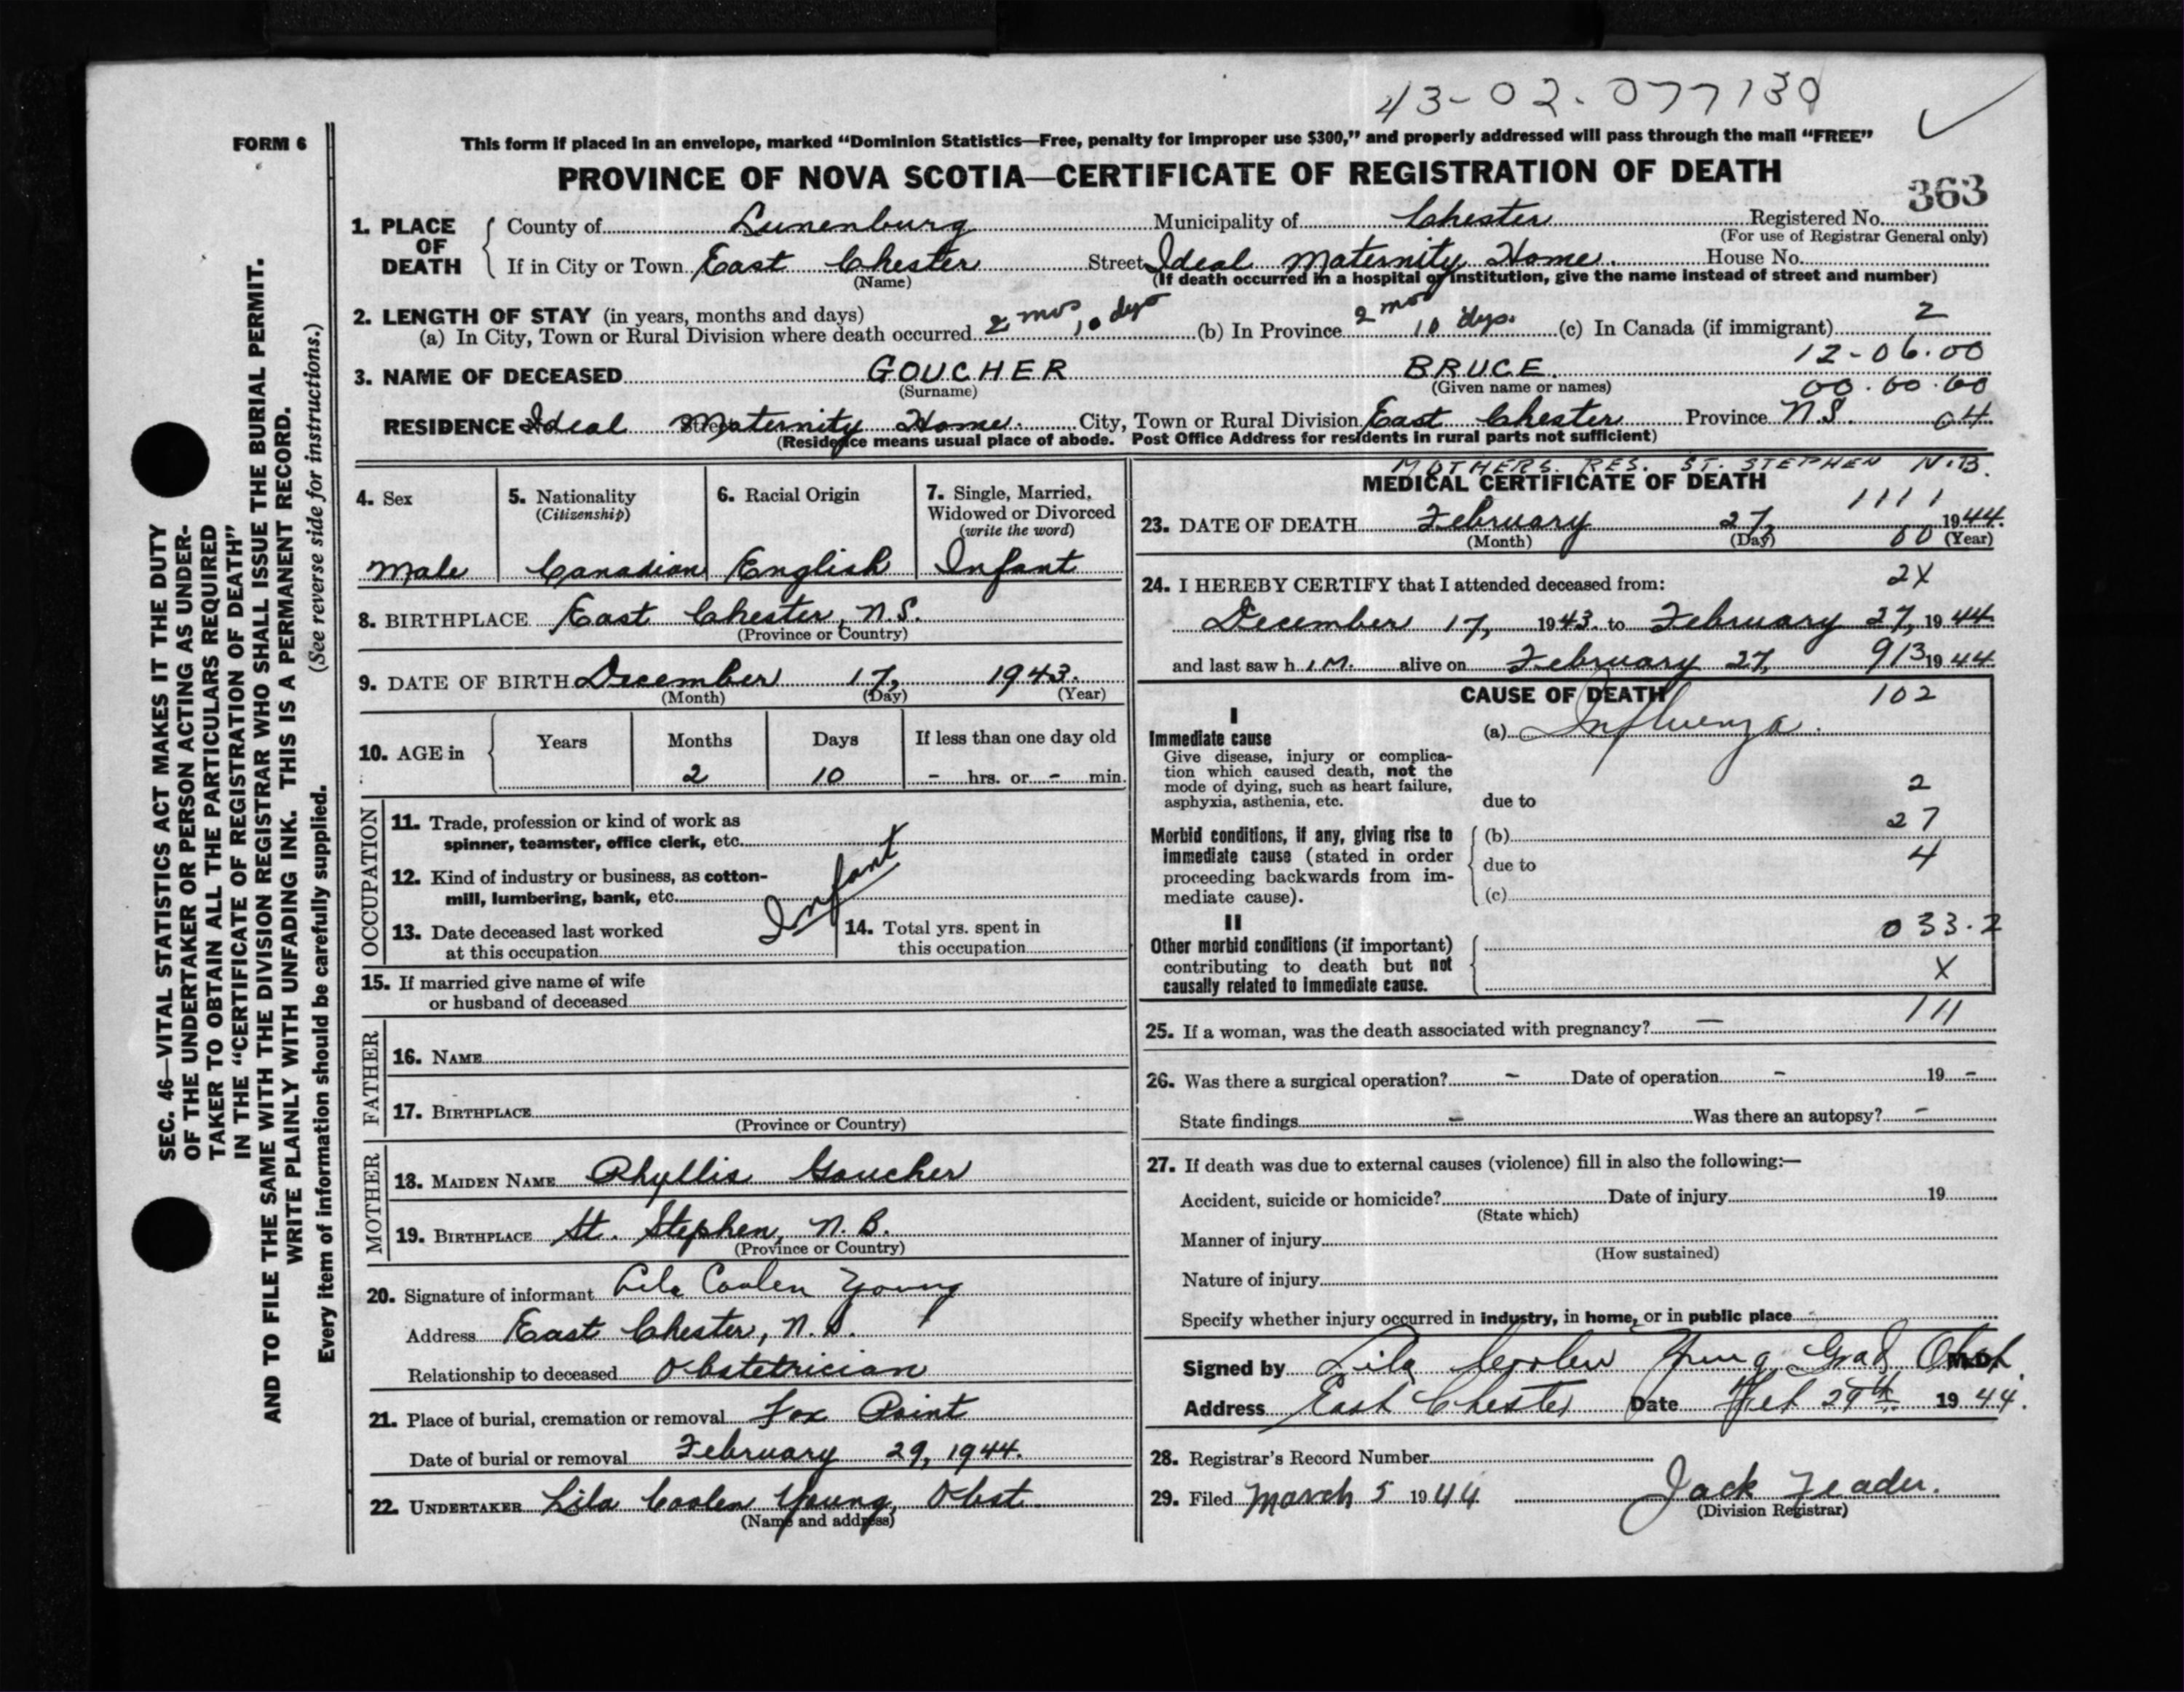 43-02-077130
FORM 6
This form if placed in an envelope, marked "Dominion Statistics—Free, penalty for improper use $300," and properly addressed will pass through the mail "FREE"
PROVINCE OF NOVA SCOTIA—CERTIFICATE OF REGISTRATION OF DEATH
363
1. PLACE OF DEATH
County of Lunenburg Municipality of Chester Registered No.
(For use of Registrar General only)
If in City or Town East Chester Street Ideal Maternity Home. House No.
(Name) (If death occurred in a hospital or institution, give the name instead of street and number)
2. LENGTH OF STAY (in years, months and days)
(a) In City, Town or Rural Division where death occurred 2 mos 10 dys (b) In Province 2 mos 10 dys. (c) In Canada (if immigrant) 2
12-06.00
3. NAME OF DECEASED GOUCHER BRUCE.
(Surname) (Given name or names) 00.00.00
RESIDENCE Ideal Street Maternity Home. City, Town or Rural Division East Chester Province N.S. 04
(Residence means usual place of abode. Post Office Address for residents in rural parts not sufficient)
SEC. 46—VITAL STATISTICS ACT MAKES IT THE DUTY
OF THE UNDERTAKER OR PERSON ACTING AS UNDER-
TAKER TO OBTAIN ALL THE PARTICULARS REQUIRED
IN THE "CERTIFICATE OF REGISTRATION OF DEATH"
AND TO FILE THE SAME WITH THE DIVISION REGISTRAR WHO SHALL ISSUE THE BURIAL PERMIT.
WRITE PLAINLY WITH UNFADING INK. THIS IS A PERMANENT RECORD.
Every item of information should be carefully supplied. (See reverse side for instructions.)
4. Sex 5. Nationality 6. Racial Origin 7. Single, Married,
(Citizenship) Widowed or Divorced
(write the word)
Male Canadian English Infant
8. BIRTHPLACE East Chester, N.S.
(Province or Country)
9. DATE OF BIRTH December 17, 1943.
(Month) (Day) (Year)
10. AGE in Years Months Days If less than one day old
2 10 - hrs. or - min.
OCCUPATION
11. Trade, profession or kind of work as
spinner, teamster, office clerk, etc.
12. Kind of industry or business, as cotton-
mill, lumbering, bank, etc.
Infant
13. Date deceased last worked 14. Total yrs. spent in
at this occupation this occupation
15. If married give name of wife
or husband of deceased
FATHER
16. NAME
17. BIRTHPLACE
(Province or Country)
MOTHER
18. MAIDEN NAME Phyllis Goucher
19. BIRTHPLACE St. Stephen, N.B.
(Province or Country)
20. Signature of informant Lila Coolen Young
Address East Chester, N.S.
Relationship to deceased Obstetrician
21. Place of burial, cremation or removal Fox Point
Date of burial or removal February 29, 1944.
22. UNDERTAKER Lila Coolen Young, Obst.
(Name and address)
MOTHERS. RES. ST. STEPHEN N.B.
MEDICAL CERTIFICATE OF DEATH
1111
23. DATE OF DEATH February 27, 1944.
(Month) (Day) 00 (Year)
24. I HEREBY CERTIFY that I attended deceased from: 2X
December 17, 1943. to February 27, 1944
and last saw h im. alive on February 27, 913 1944
CAUSE OF DEATH 102
I
Immediate cause (a) Influenza.
Give disease, injury or complica-
tion which caused death, not the
mode of dying, such as heart failure, 2
asphyxia, asthenia, etc. due to
27
Morbid conditions, if any, giving rise to (b)
immediate cause (stated in order due to 4
proceeding backwards from im-
mediate cause). (c)
II
033.2
Other morbid conditions (if important)
contributing to death but not X
causally related to immediate cause.
111
25. If a woman, was the death associated with pregnancy? —
26. Was there a surgical operation? - Date of operation - 19 -
State findings - Was there an autopsy? -
27. If death was due to external causes (violence) fill in also the following:—
Accident, suicide or homicide? Date of injury 19
(State which)
Manner of injury
(How sustained)
Nature of injury
Specify whether injury occurred in industry, in home, or in public place
Signed by Lila Coolen Young, Grad Obst. M.D.
Address East Chester Date Feb 29th. 1944.
28. Registrar's Record Number
29. Filed March 5 1944 Jack Feader.
(Division Registrar)